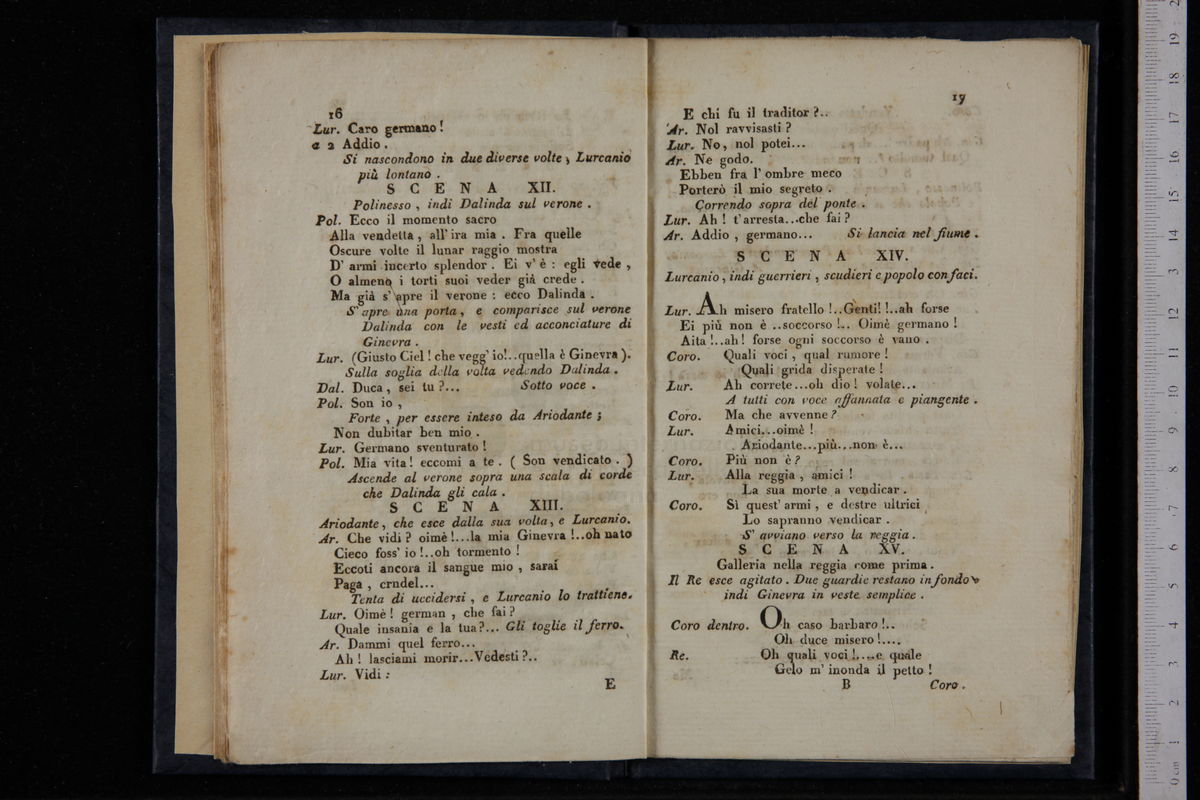 16
Lur. Caro germano!
a 2 Addio.
Si nascondono in due diverse volte, Lurcanio
più lontano.
SCENA XII.
Polinesso, indi Dalinda sul verone.
Pol. Ecco il momento sacro
Alla vendetta, all' ira mia. Fra quelle
Oscure volte il lunar raggio mostra
D' armi incerto splendor. Ei v' è: egli vede,
O almeno i torti suoi veder già crede.
Ma già s' apre il verone: ecco Dalinda.
S' apre una porta, e comparisce sul verone
Dalinda con le vesti ed acconciature di
Ginevra.
Lur. (Giusto Ciel! che vegg' io!..quella è Ginevra).
Sulla soglia della volta vedendo Dalinda.
Dal. Duca, sei tu?... Sotto voce.
Pol. Son io,
Forte, per essere inteso da Ariodante;
Non dubitar ben mio.
Lur. Germano sventurato!
Pol. Mia vita! eccomi a te. (Son vendicato.)
Ascende al verone sopra una scala di corde
che Dalinda gli cala.
SCENA XIII.
Ariodante, che esce dalla sua volta, e Lurcanio.
Ar. Che vidi? oimè!...la mia Ginevra!..oh nato
Cieco foss' io!..oh tormento!
Eccoti ancora il sangue mio, sarai
Paga, crndel...
Tenta di uccidersi, e Lurcanio lo trattiene.
Lur. Oimè! german, che fai?
Quale insania e la tua?... Gli toglie il ferro.
Ar. Dammi quel ferro...
Ah! lasciami morir...Vedesti?..
Lur. Vidi:
E
17
E chi fu il traditor?..
Ar. Nol ravvisasti?
Lur. No, nol potei...
Ar. Ne godo.
Ebben fra l' ombre meco
Porterò il mio segreto.
Correndo sopra del ponte.
Lur. Ah! t' arresta...che fai?
Ar. Addio, germano... Si lancia nel fiume.
SCENA XIV.
Lurcanio, indi guerrieri, scudieri e popolo con faci.
Lur. Ah misero fratello!..Genti!!..ah forse
Ei più non è ..soccorso!.. Oimè germano!
Aita!..ah! forse ogni soccorso è vano.
Coro. Quali voci, qual rumore!
Quali grida disperate!
Lur. Ah correte...oh dio! volate...
A tutti con voce affannata e piangente.
Coro. Ma che avvenne?
Lur. Amici...oimè!
Ariodante...più...non è...
Coro. Più non è?
Lur. Alla reggia, amici!
La sua morte a vendicar.
Coro. Sì quest' armi, e destre ultrici
Lo sapranno vendicar.
S' avviano verso la reggia.
SCENA XV.
Galleria nella reggia come prima.
Il Re esce agitato. Due guardie restano in fondo
indi Ginevra in veste semplice.
Coro dentro. Oh caso barbaro!..
Oh duce misero!....
Re. Oh quali voci!....e quale
Gelo m' inonda il petto!
B Coro.
0 cm 1 2 3 4 5 6 7 8 9 10 11 12 13 14 15 16 17 18 19